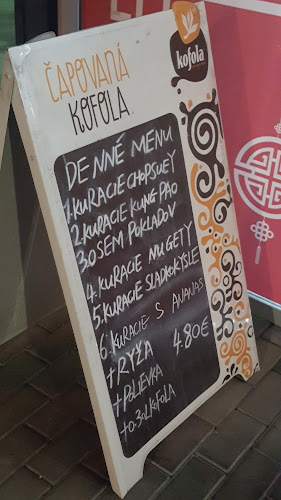 kofola
ČAPOVANÁ
KOFOLA
DENNÉ MENU
1. KURACIE CHOPSUEY
2. KURACIE KUNG PAO
3. OSEM POKLADOV
4. KURACIE NUGETY
5. KURACIE SLADKOKYSLÉ
6. KURACIE S ANANAS
+ RYŽA 4.80€
+ POLIEVKA
+ 0.30L KOFOLA